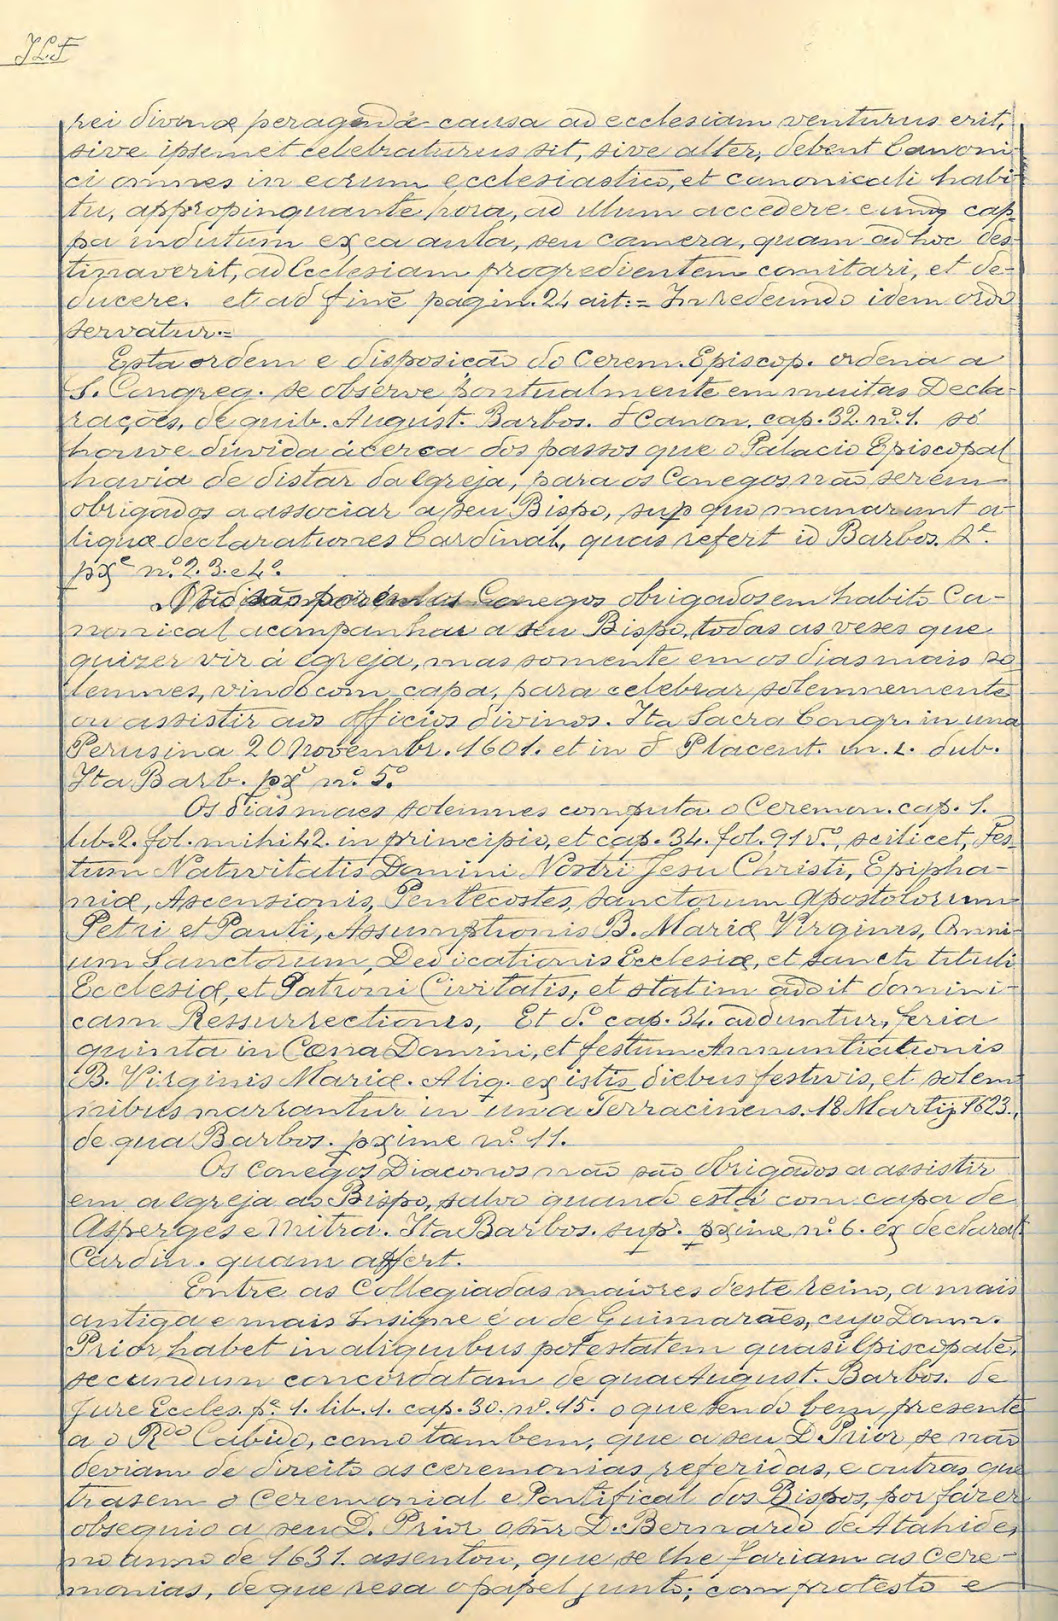 JLF
rei divinæ peragendá causa ad ecclesiam venturus erit,
sive ipsemet celebraturus sit, sive alter, debent Canoni-
ci omnes in eorum ecclesiastico, et canonicali habi-
tu, appropinquante hora, ad illum accedere eumq cap-
pa indutum ex ea aula, seu camera, quam ad hoc des-
tinaverit, ad Ecclesiam progredientem comitari, et de-
ducere. et ad finē pagin. 24 ait: = In redeundo idem ordo
servatur. =
Esta ordem e disposição do Cerem. Episcop. ordena a
S. Congreg. se observe pontualmente em muitas Decla-
rações, de quib. August. Barbos. d Canon. cap. 32 nº. 1. só
houve dúvida ácerca dos passos que o Palacio Episcopal
havia de distar da Igreja, para os Conegos não serem
obrigados a associar a seu Bispo, sup quo manarunt a-
liquæ declarationes Cardinal, quas refert id Barbos.
nº. 2. 3. e 4º.
Não são porém os Conegos obrigados em habito Ca-
nonical acompanhar a seu Bispo, todas as veses que
quizer vir á Igreja, mas somente em os dias mais so-
lemnes, vindo com capa, para celebrar solemnemente
ou assistir aos officios divinos. Ita Sacra Congr. in una
Perusina 20 Novembr. 1601. et in d Placent. dub.
Ita Barb. nº. 5º.
Os dias maes solemnes computa o Ceremon. cap. 1.
lib. 2. fol. mihi 42. in principio, et cap. 34. fol. 91 vº, scilicet, Fes-
tum Nativitatis Domini Nostri Jesu Christi, Epipha-
niæ, Ascensionis, Pentecostes, Sanctorum Apostolorum
Petri et Pauli, Assumptionis B. Mariæ Virginis, Omni-
um Sanctorum, Dedicationis Ecclesiæ, et Sancti tituli
Ecclesiæ, et Patroni Civitatis, et statim addit domini-
cam Ressurrectionis, Et dº cap. 34. adduntur, feria
quinta in Cœna Domini, et festum Annuntiationis
B. Virginis Mariæ. Aliq. ex istis diebus festivis, et solem
nibus narrantur in una Terracinens. 18 Martij 1623.,
de qua Barbos. pxime nº. 11.
Os Conegos Diaconos não são obrigados a assistir
em a Igreja ao Bispo, salvo quando está com capa de
Asperges e Mitra. Ita Barbos. supr. pxime nº. 6. ex declarat.
Cardin. quam affert.
Entre as Collegiadas maiores deste reino, a mais
antiga e mais Insigne é a de Guimarães, cujo Domn.
Prior habet in aliquibus potestatem quasi Episcopalē,
secundum concordatam de qua August. Barbos. de
Jure Eccles. pe. 1. lib. 1. cap. 30. nº. 45. o que sendo bem presente
a o Rdo Cabido, como tambem, que a seu D. Prior se não
deviam de direito as ceremonias referidas, e outras que
trasem o Ceremonial e Pontifical dos Bispos, por fazer
obsequio a seu D. Prior o Snr D. Bernardo de Atahide,
no anno de 1631. assentou, que se lhe fariam as Cere-
monias, de que resa o papel junto; com protesto e